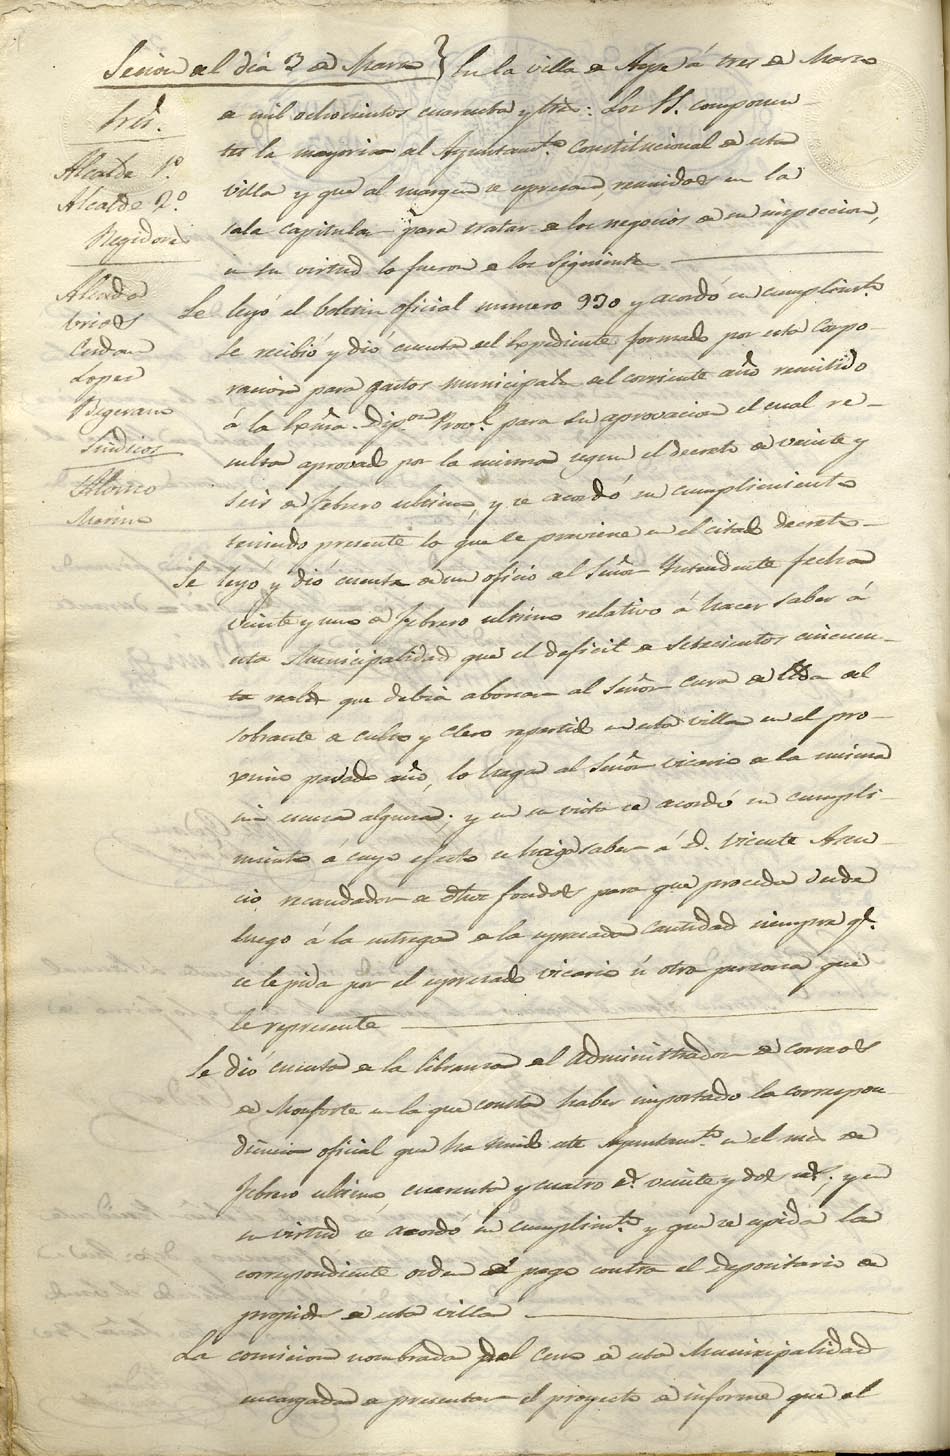 Sesion del dia 3 de Marzo } En la villa de Aspe á tres de Marzo
Sres.
Alcalde 1º
Alcalde 2º
Regidores
Alcado
Cerdan
Lopez
Sindicos
Alonso
Merino
de mil ochocientos cuarenta y tres: Los SS. componen
tes la mayoria del Ayuntamt.º Constitucional de esta
villa y que al margen se espresan, reunidos en la
sala capitular para tratar de los negocios de su inspeccion,
en su virtud lo fueron de los siguientes
Se leyó el boletin oficial numero 930 y acordó su cumplimt.º
Se recibió y dió cuenta del Espediente formado por esta Corpo-
racion para gastos municipales del corriente año remitido
á la Exma. Dip.on Prov.l para su aprovacion el cual re-
sulta aprovado por la misma segun el decreto de veinte y
seis de febrero ultimo, y se acordó su cumplimiento
teniendo presente lo que se previene en el citado decreto-
Se leyó y dió cuenta de un oficio del Señor Yntendente fecha
veinte y uno de Febrero ultimo relativo á hacer saber á
esta Municipalidad que el deficit de setecientos cincuen-
ta reales que debia abonar al Señor Cura de Elda del
sobrante de culto y clero repartido en esta villa en el pro-
ximo pasado año, lo haga al Señor vicario de la misma
sin escusa alguna; y en su vista se acordó su cumpli-
miento á cuyo efecto se haga saber á D. Vicente Asen-
cio recaudador de dhos fondos para que proceda desde
luego á la entrega de la espresada cantidad siempre q.e
se le pida por el espresado vicario ú otra persona que
le represente
Se dió cuenta de la libranza del Administrador de correos
de Monforte en la que consta haber importado la correspon-
dencia oficial que ha tenido este Ayuntamt.º en el mes de
febrero ultimo cuarenta y cuatro r.s veinte y dos ms.; y en
su virtud se acordó su cumplimt.º y que se espida la
correspondiente orden de pago contra el depositario de
propios de esta villa
La comision nombrada del seno de esta Municipalidad
encargada de presentar el proyecto de informe que el